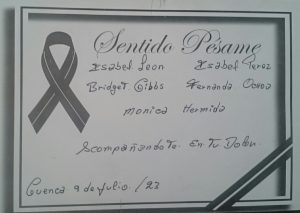 Sentido Pésame
Isabel Leon Isabel Perez
Bridget Gibbs Fernanda Ochoa
Monica Hermida
Acompañandote. En Tu Dolor.
Cuenca 9 de Julio /23